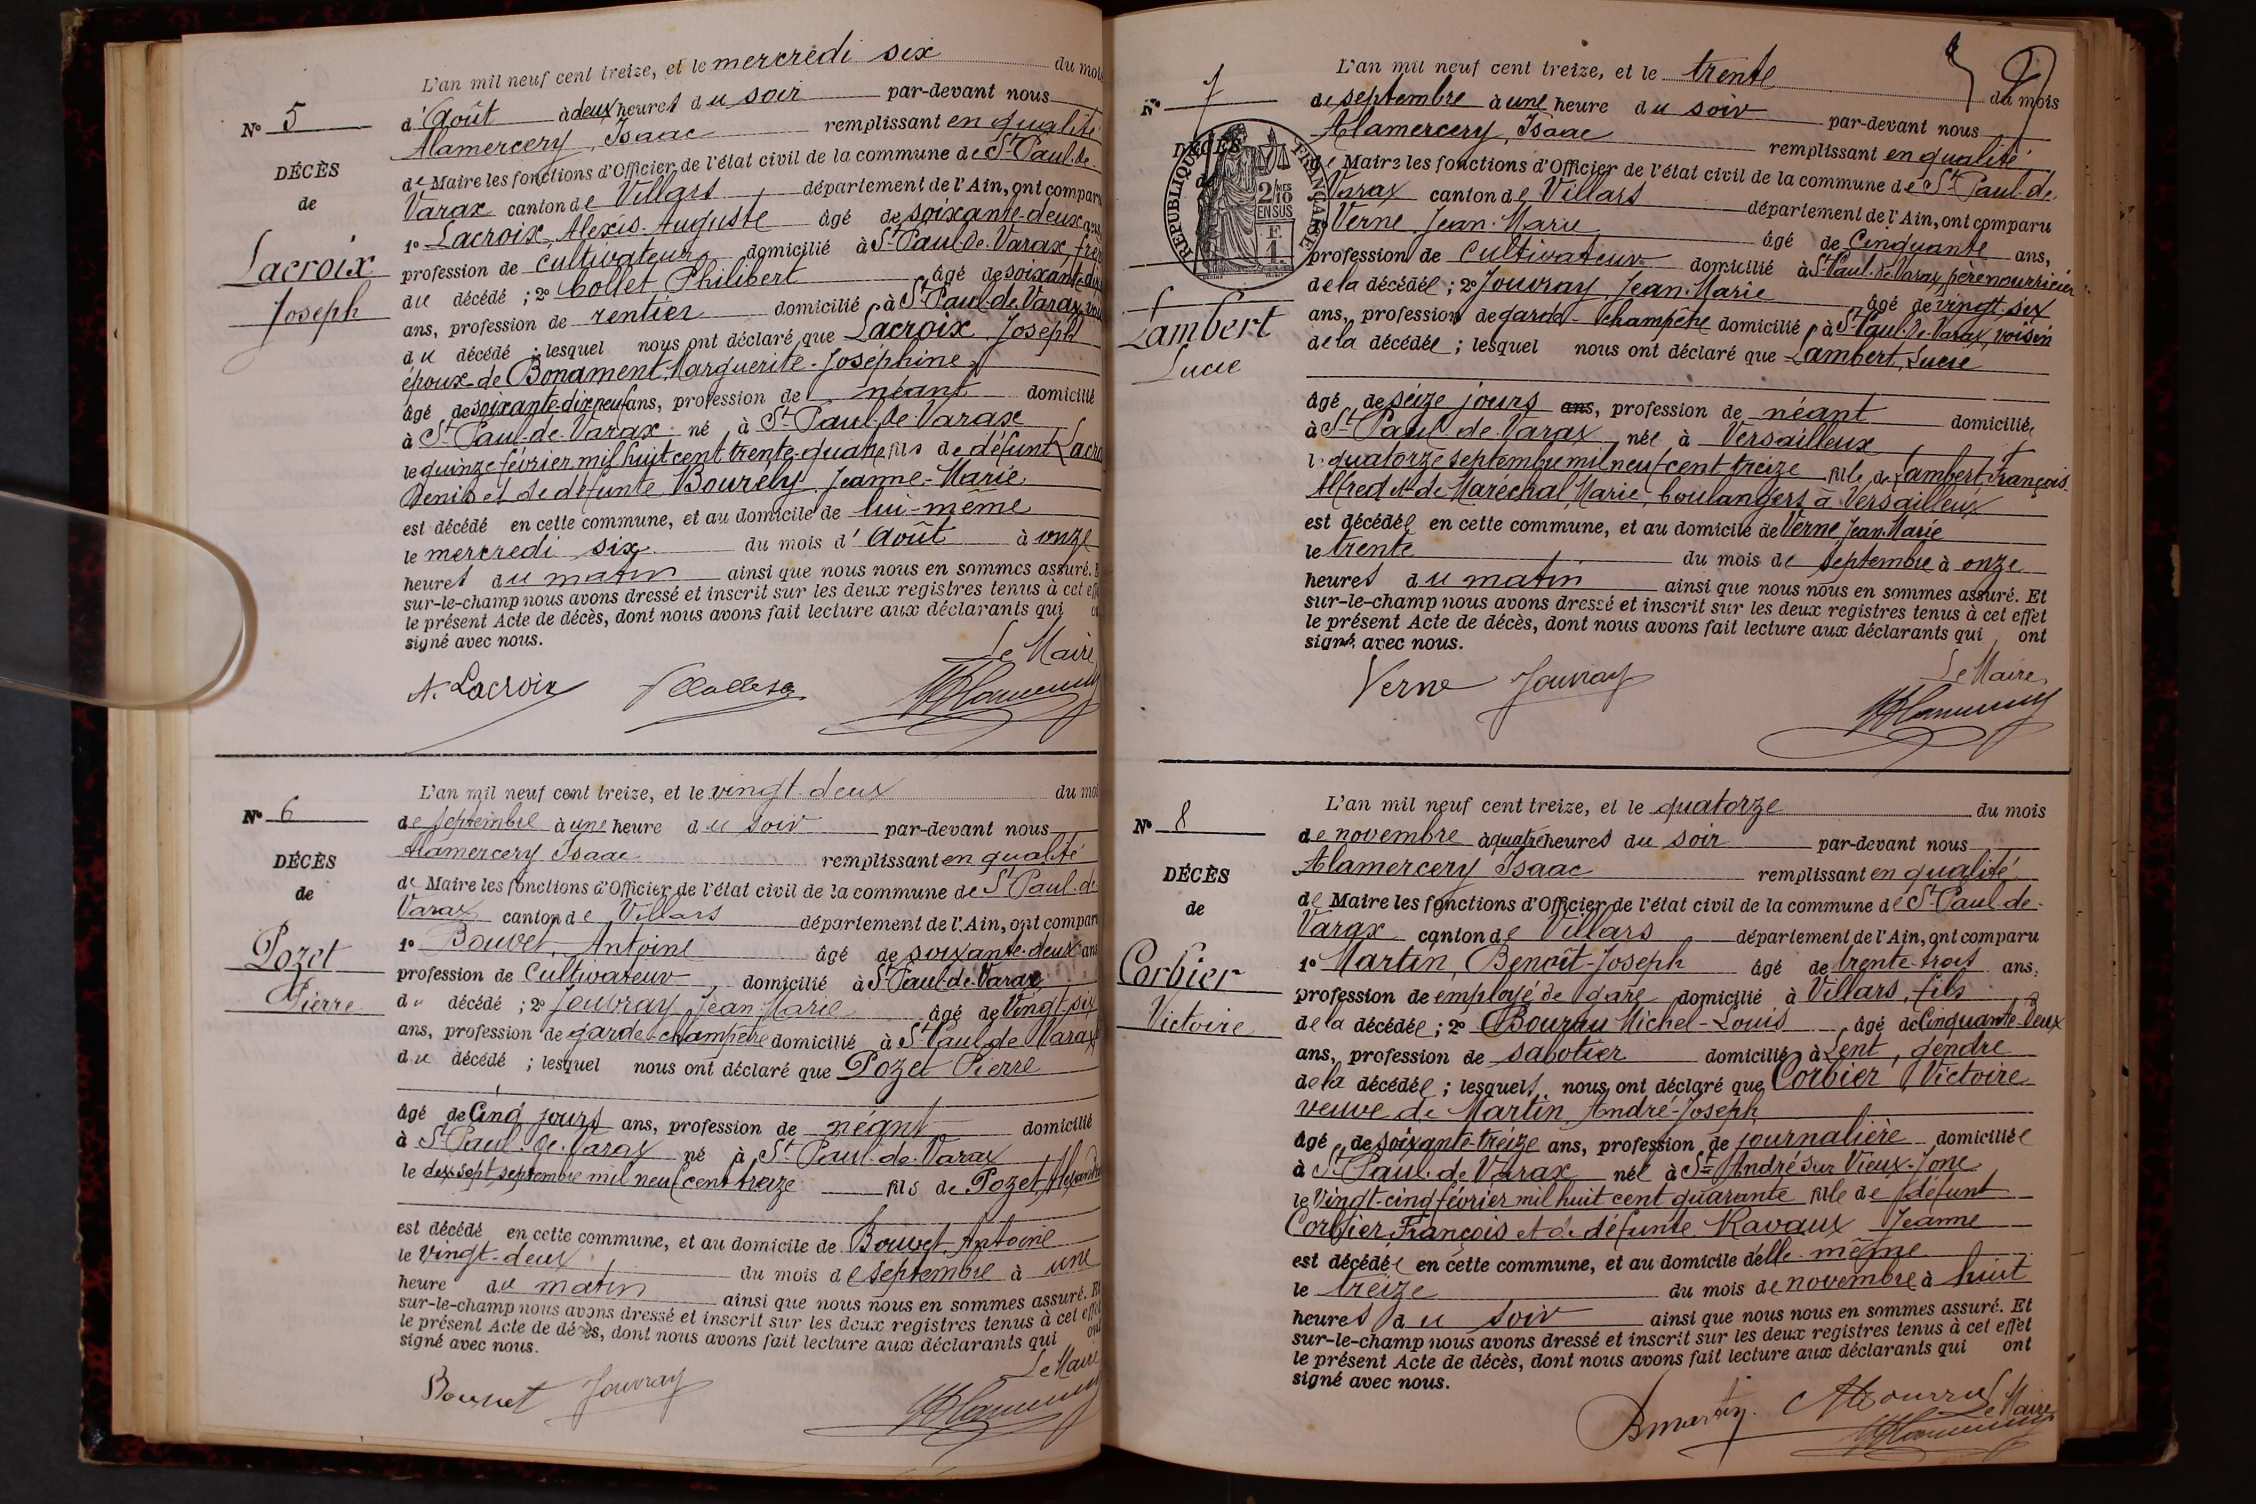 L'an mil neuf cent treize, et le mercredi six du mois
Nº 5
d'Août à deux heures du soir par-devant nous
Alamercery, Isaac remplissant en qualité
DÉCÈS
de Maire les fonctions d'Officier de l'état civil de la commune de St Paul-de-
de
Varax canton de Villars département de l'Ain, ont comparu
1º Lacroix, Alexis-Auguste âgé de soixante-deux ans
Lacroix
profession de cultivateur domicilié à St Paul-de-Varax, frère
Joseph
du décédé ; 2º Collet Philibert âgé de soixante-dix
ans, profession de rentier domicilié à St Paul-de-Varax,
du décédé ; lesquel nous ont déclaré que Lacroix Joseph
époux de Bonament, Marguerite-Josephine
âgé de soixante-dix neuf ans, profession de néant domicilié
à St Paul-de-Varax né à St Paul-de-Varax
le quinze février mil huit cent trente-quatre fils de défunt Lacroix
Denis et de défunte Bourely Jeanne-Marie
est décédé en cette commune, et au domicile de lui-même
le mercredi six du mois d'Août à onze
heures du matin ainsi que nous nous en sommes assuré. Et
sur-le-champ nous avons dressé et inscrit sur les deux registres tenus à cet effet
le présent Acte de décès, dont nous avons fait lecture aux déclarants qui
signé avec nous.
Le Maire
A. Lacroix
L'an mil neuf cent treize, et le vingt-deux du mois
Nº 6
de septembre à une heure du soir par-devant nous
Alamercery Isaac remplissant en qualité
DÉCÈS
de Maire les fonctions d'Officier de l'état civil de la commune de St Paul-de
de
Varax canton de Villars département de l'Ain, ont comparu
1º Bouvet, Antoine âgé de soixante-deux ans
Pozet
profession de Cultivateur domicilié à St Paul-de-Varax
Pierre
du décédé ; 2º Jouvray Jean Marie âgé de Vingt six
ans, profession de garde-champêtre domicilié à St Paul de Varax
du décédé ; lesquel nous ont déclaré que Pozet Pierre
âgé de Cinq jours ans, profession de néant domicilié
à St Paul-de-Varax né à St Paul-de-Varax
le dix-sept septembre mil neuf cent treize fils de Pozet,
est décédé en cette commune, et au domicile de Bouvet Antoine
le Vingt-deux du mois de septembre à une
heure du matin ainsi que nous nous en sommes assuré. Et
sur-le-champ nous avons dressé et inscrit sur les deux registres tenus à cet effet
le présent Acte de décès, dont nous avons fait lecture aux déclarants qui ont
signé avec nous.
Le Maire
Bouvet Jouvray
L'an mil neuf cent treize, et le trente du mois
Nº 7
de septembre à une heure du soir par-devant nous
Alamercery, Isaac remplissant en qualité
DÉCÈS
de
RÉPUBLIQUE FRANÇAISE
2/10 MES EN SUS
F. 1.
de Maire les fonctions d'Officier de l'état civil de la commune de St Paul-de
Varax canton de Villars département de l'Ain, ont comparu
Verne Jean-Marie âgé de Cinquante ans,
profession de Cultivateur domicilié à St Paul-de-Varax, père nourricier
de la décédée ; 2º Jouvray Jean-Marie âgé de vingt-six
Lambert
Lucie
ans, profession de garde-champêtre domicilié à St Paul-de-Varax, voisin
de la décédée ; lesquel nous ont déclaré que Lambert, Lucie
âgé de seize jours ans, profession de néant domiciliée
à St Paul de Varax née à Versailleux
le quatorze septembre mil neuf cent treize fille de Lambert François-
Alfred et de Maréchal Marie, boulangers à Versailleux
est décédée en cette commune, et au domicile de Verne Jean-Marie
le trente du mois de septembre à onze
heures du matin ainsi que nous nous en sommes assuré. Et
sur-le-champ nous avons dressé et inscrit sur les deux registres tenus à cet effet
le présent Acte de décès, dont nous avons fait lecture aux déclarants qui ont
signé avec nous.
Le Maire
Verne Jouvray
L'an mil neuf cent treize, et le quatorze du mois
Nº 8
de novembre à quatre heures du soir par-devant nous
Alamercery Isaac remplissant en qualité
DÉCÈS
de Maire les fonctions d'Officier de l'état civil de la commune de St Paul-de-
de
Varax canton de Villars département de l'Ain, ont comparu
1º Martin, Benoît-Joseph âgé de trente-trois ans,
Corbier
profession de employé de gare domicilié à Villars, fils
Victoire
de la décédée ; 2º Bourru Michel-Louis âgé de Cinquante-deux
ans, profession de sabotier domicilié à Lent, gendre
de la décédée ; lesquels nous ont déclaré que Corbier Victoire
veuve de Martin, André-Joseph
âgé de soixante-treize ans, profession de journalière domiciliée
à St Paul-de-Varax née à St André sur Vieux-Jonc
le Vingt-cinq février mil huit cent quarante fille de défunt
Corbier, François et de défunte Ravaux Jeanne
est décédée en cette commune, et au domicile d'elle-même
le treize du mois de novembre à huit
heures du soir ainsi que nous nous en sommes assuré. Et
sur-le-champ nous avons dressé et inscrit sur les deux registres tenus à cet effet
le présent Acte de décès, dont nous avons fait lecture aux déclarants qui ont
signé avec nous.
Le Maire